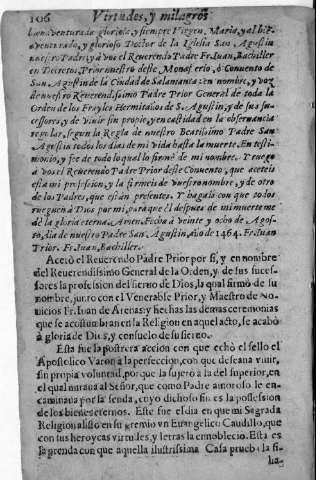 106 Virtudes, y milagros
uenturada gloriosa, y siempre Virgen, Maria, y al bie-
auenturado, y glorioso Doctor de la Iglesia San Agustin
nuestro Padre, y à vos el Reuerendo Padre Fr. Juan, Bachiller
en Decretos, Prior nuestro deste Monasterio, ò Conuento de
San Agustin de la Ciudad de Salamanca: en nombre, y voz
de nuestro Reuerendissimo Padre Prior General de toda la
Orden de los Frayles Hermitaños de S. Agustin, y de sus suc-
cessores, y de viuir sin propio, y en castidad en la obseruancia
regular, segun la Regla de nuestro Beatissimo Padre San
Agustin todos los dias de mi vida hasta la muerte. En testi-
monio, y fee de todo lo qual lo firmé de mi nombre. Y ruego
a vos el Reuerendo Padre Prior deste Conuento, que aceteis
esta mi profession, y la firmeis de vuestro nombre, y de otro
de los Padres, que están presentes. Y hagais con que todos
rueguen à Dios por mi, para que èl despues de mi muerte me
dè la gloria eterna, Amen. Fecha à veinte y ocho de Agos-
to, dia de nuestro Padre San Agustin, año de 1464. Fr. Iuan
Prior. Fr. Iuan, Bachiller.
Acetò el Reuerendo Padre Prior por si, y en nombre
del Reuerendissimo General de la Orden, y de sus suces-
sores la profession del sieruo de Dios, la qual firmò de su
nombre, junto con el Venerable Prior, y Maestro de No-
uicios Fr. Iuan de Arenas: y hechas las demas ceremonias
que se acostumbran en la Religion en aquel acto, se acabò
à gloria de Dios, y consuelo de su sieruo.
Esta fue la postrera accion con que echò el sello el
Apostolico Varon a la perfeccion, con que deseaua viuir,
sin propia voluntad, porque la sujetò a la del superior, en
el qual miraua al Señor, que como Padre amoroso le en-
caminaua por la senda, cuyo dichoso fin es la possession
de los bienes eternos. Este fue el dia en que mi Sagrada
Religion alistò en su gremio vn Euangelico Caudillo, que
con sus heroycas virtudes, y letras la ennoblecio. Esta es
la prenda con que aquella ilustrissima Casa prueba la fi-
lia-